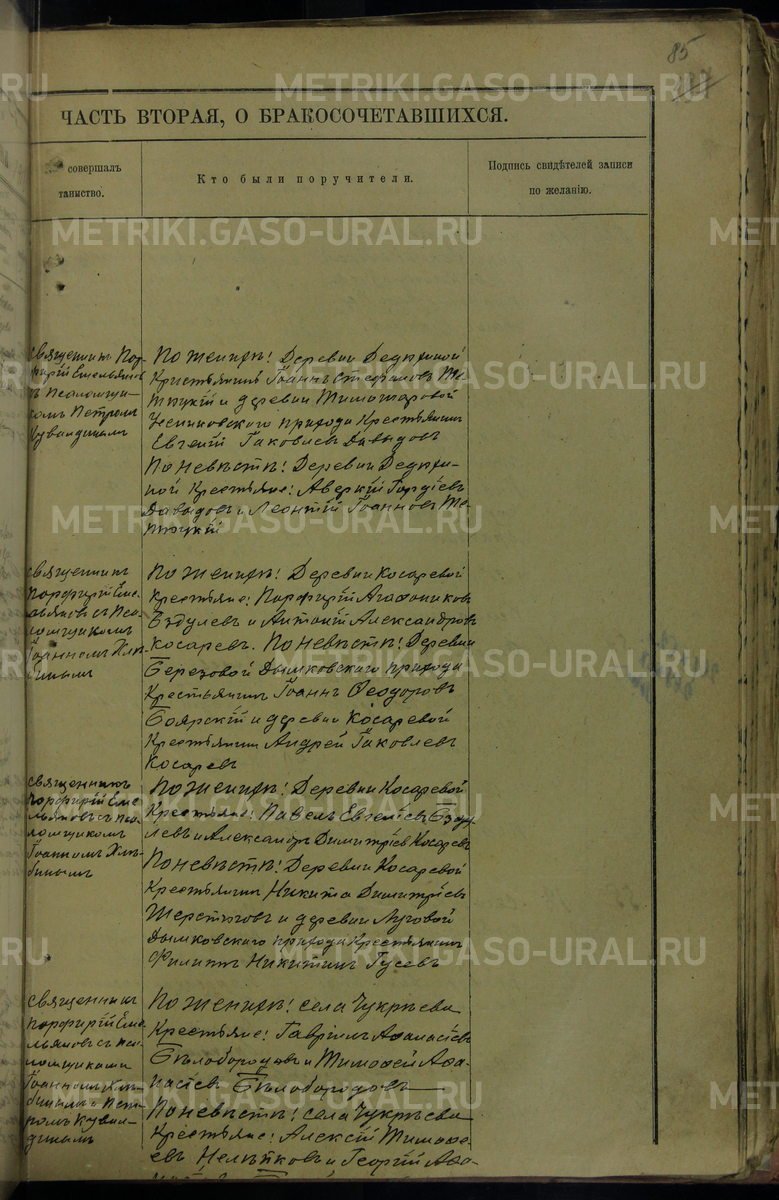 85
ЧАСТЬ ВТОРАЯ, О БРАКОСОЧЕТАВШИХСЯ.
совершалъ
таинство.
Кто были поручители.
Подпись свидѣтелей записи
по желанію.
METRIKI.GASO-URAL.RU
священникъ Пор-
фирій Емельяновъ
съ Псаломщи-
комъ Петромъ
Кувалдинымъ
По женихѣ: Деревни Дедюхиной
Крестьянинъ Іоаннъ Стефановъ
и деревни
прихода Крестьянинъ
Евгеній Іаковлевъ Давыдовъ
По невѣстѣ: Деревни Дедюхи-
ной крестьяне: Аверкій Гордіевъ
Давыдовъ и Леонтій Іоанновъ
священникъ
Порфирій Еме-
льяновъ съ Пса-
ломщикомъ
Іоанномъ Хлѣ-
бинымъ
По женихѣ: Деревни Косаревой
Крестьяне: Порфирій Агафониковъ
Бздулевъ и Антоній Александровъ
Косаревъ. По невѣстѣ: Деревни
Березовой Дымковскаго прихода
Крестьянинъ Іоаннъ Ѳеодоровъ
Боярскій и деревни Косаревой
Крестьянинъ Андрей Іаковлевъ
Косаревъ
священникъ
Порфирій Еме-
льяновъ съ пса-
ломщикомъ
Іоанномъ Хлѣ-
бинымъ
По женихѣ: Деревни Косаревой
Крестьяне: Павелъ Евгеніевъ Бзду-
левъ и Александръ Димитріевъ Косаревъ
По невѣстѣ: Деревни Косаревой
Крестьянинъ Никита Димитріевъ
Шерстюговъ и деревни Луговой
Дымковскаго прихода Крестьянинъ
Филиппъ Никитинъ Гусевъ
священникъ
Порфирій Еме-
льяновъ съ пса-
ломщиками
Іоанномъ Хлѣ-
бинымъ и Пет-
ромъ Кувал-
динымъ
По женихѣ: села Чукрѣева
Крестьяне: Гавріилъ Аѳанасіевъ
Бѣлобородовъ и Тимофей Аѳа-
насіевъ Бѣлобородовъ
По невѣстѣ: села Чукрѣева
Крестьяне: Алексій Тимофе-
евъ Нелѣпковъ и Георгій Аѳа-